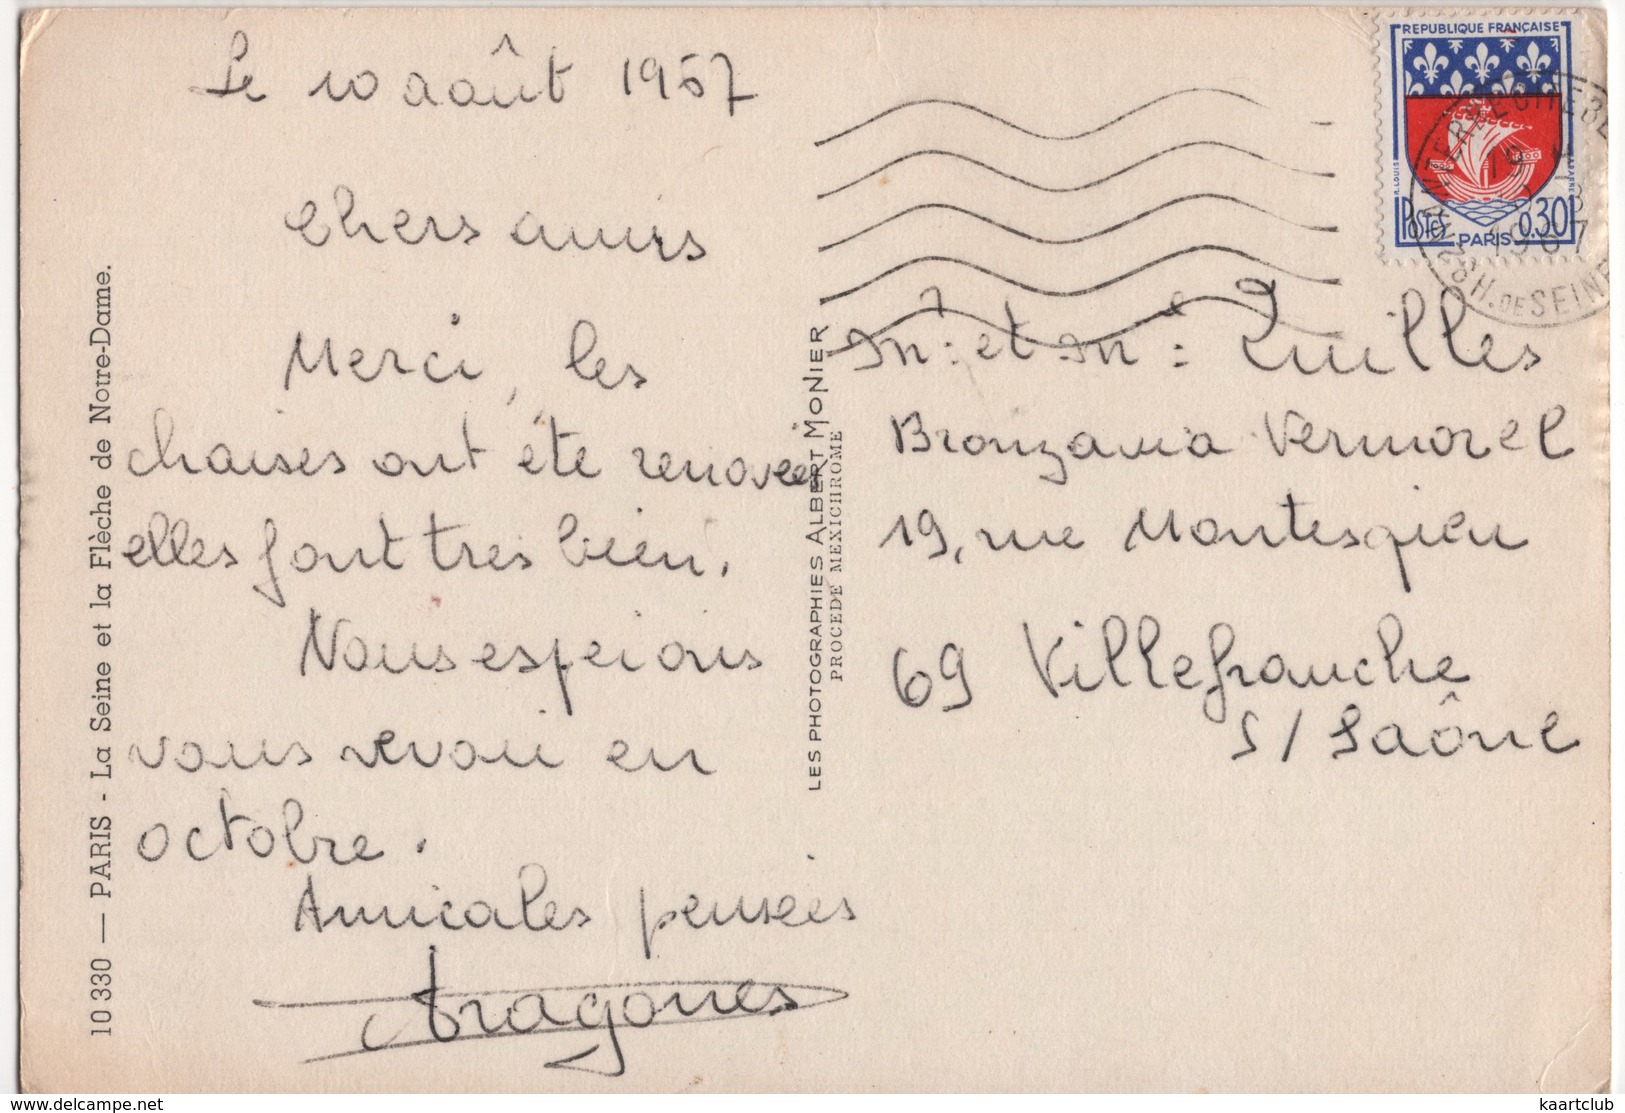 Le 10 août 1967
Chers amis
Merci, les
chaises ont été renovées
elles font tres bien.
Nous esperions
vous revoir en
octobre.
Amicales pensées
Aragones
10 330 — PARIS - La Seine et la Flèche de Notre-Dame.
LES PHOTOGRAPHIES ALBERT MONIER
PROCEDE MEXICHROME
REPUBLIQUE FRANÇAISE
POSTES
0,30
PARIS
R. LOUIS
1967
H. DE SEINE
Mr: et Mme: Quilles
Bronzavia Vermorel
19, rue Montesquieu
69 Villefranche
S/ Saône
kaartclub